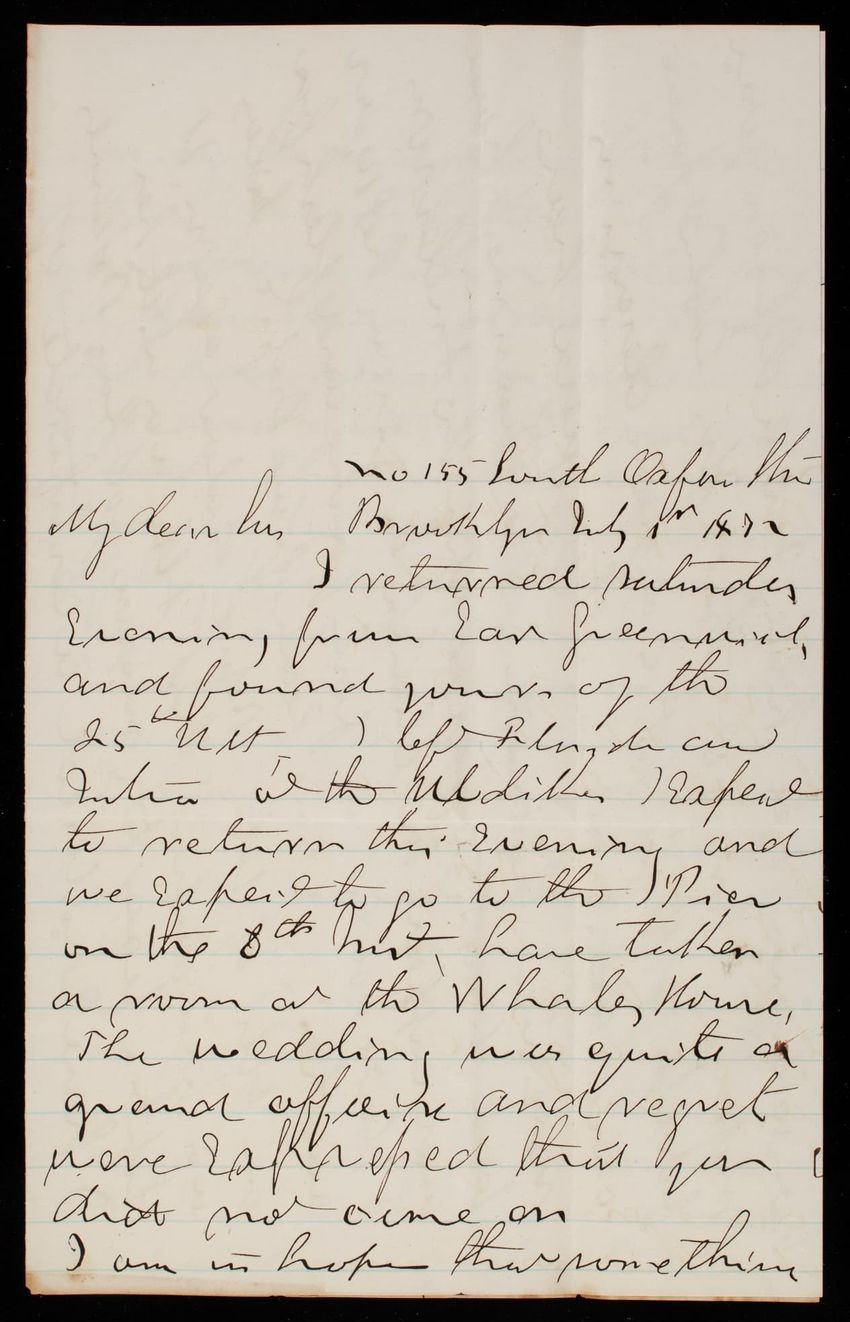 No 155 South Oxford St
My dear Brooklyn July 1st 1872
I returned Saturday
Evening, from East Greenwich,
and found yours of the
25th Ult I left and
at the Updikes I Expect
to return this Evening and
we Expect to go to the Pier
on the 8th Inst, have taken
a room at the Whaley House,
The wedding was quite a
grand affair and regret
were Expressed that you
did not come on
I am in hopes that something